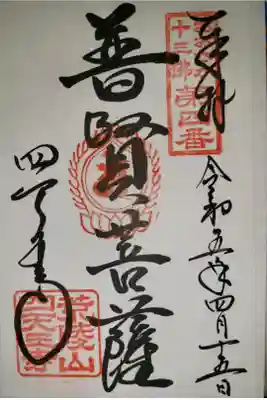 奉拝
十三佛
第四番
令和五年四月十五日
普賢菩薩
四天王寺
荒陵山
四天王寺